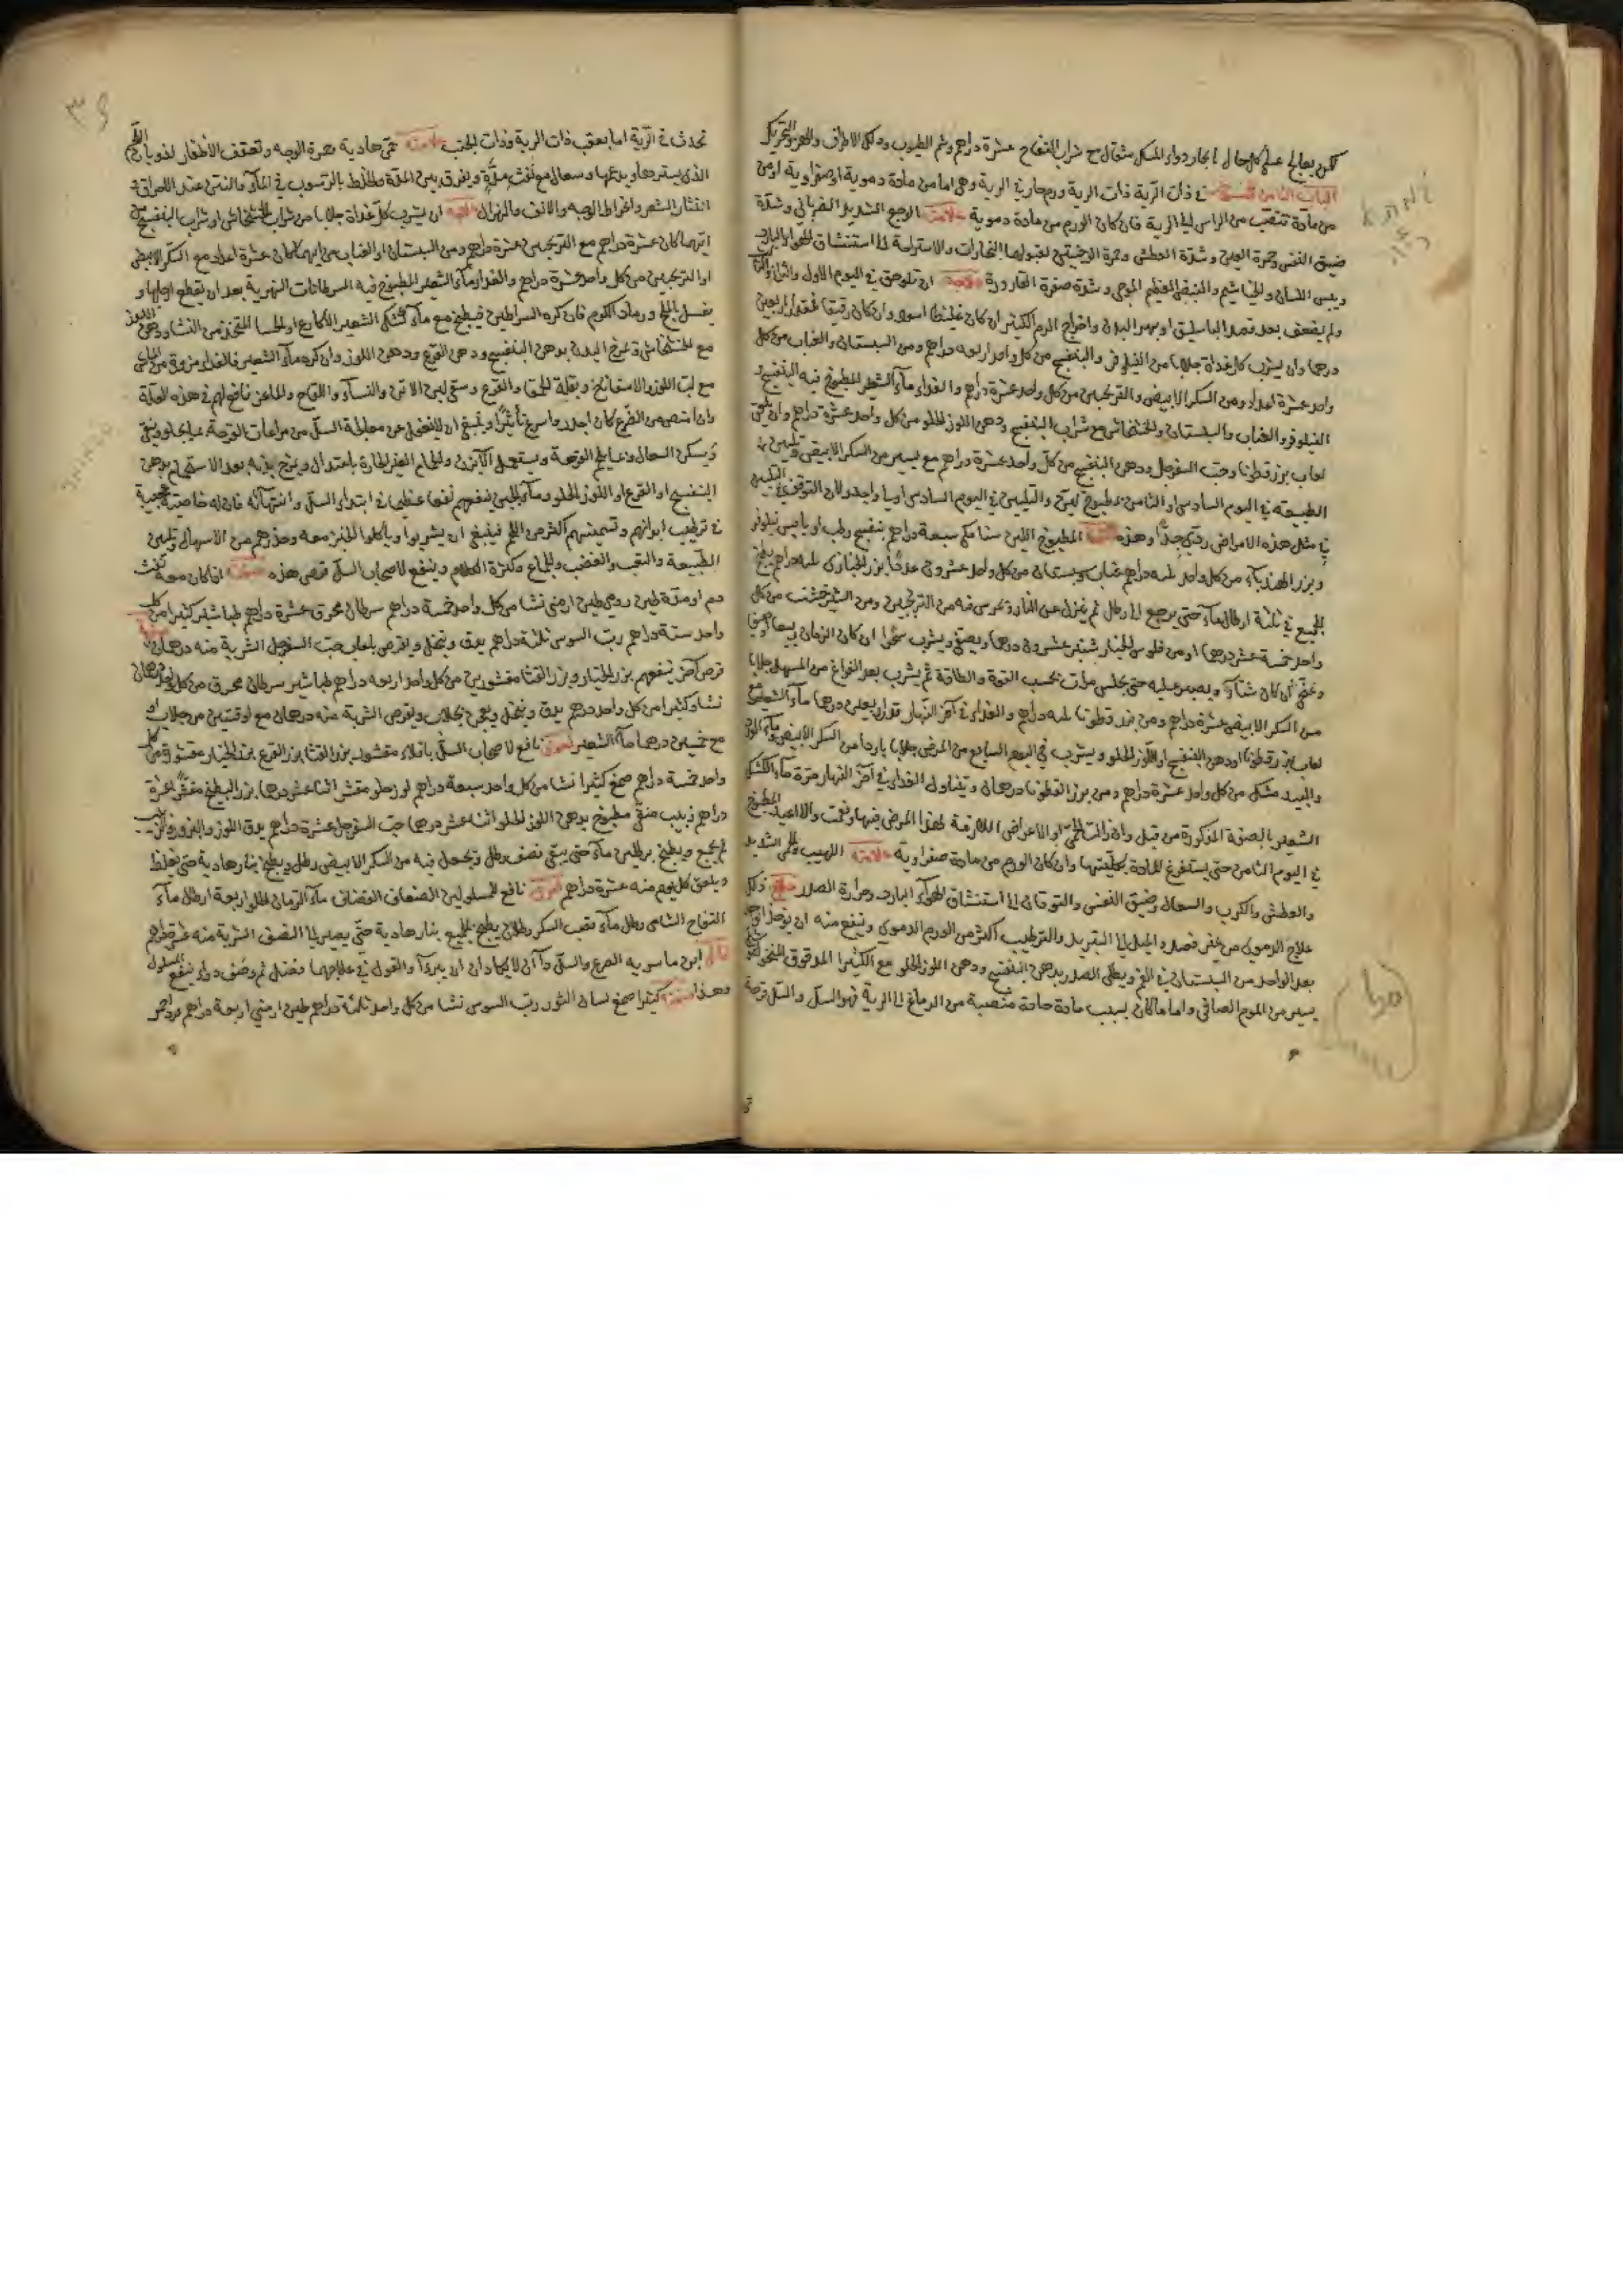 لكن يعالج على كل حال بايجار دواء المسك مثقال مع شراب التفاح عشرة دراهم وشم الطيوب ودلك الاطراف والهز والتحريك
الباب الثامن في ذات الرية ذات الرية ورم حار في الرية وهي اما من مادة دموية او صفراوية او من
من مادة تنصب من الراس الى الرية فان كان الورم من مادة دموية علامته الوجع الشديد الضرباني وشدة
ضيق النفس وحمرة العين وشدة العطش وحمرة الوجنتين لقبولها البخارات والاستراحة الى استنشاق الهواء البارد
ويبس اللسان والخياشيم والنبض العظيم الموجي وشدة صفرة القارورة علاجه ان تلوحق في اليوم الاول والثاني
ولم يضعف بعد فصد الباسليق او بهر البدن واخراج الدم الكثير ان كان غليظا اسود وان كان رقيقا فمقدار اربعين
درهما وان يشرب كل غداة جلابا من النيلوفر والبنفسج من كل واحد اربعة دراهم ومن السبستان والعناب من كل
واحد عشرة اعداد ومن السكر الابيض والترنجبين من كل واحد عشرة دراهم والغذاء ماء الشعير المطبوخ فيه البنفسج و
النيلوفر والعناب والسبستان والخشخاش مع شراب البنفسج ودهن اللوز الحلو من كل واحد عشرة دراهم وان يلعق
لعاب بزر قطونا وحب السفرجل ودهن البنفسج من كل واحد عشرة دراهم مع يسير من السكر الابيض وتليين
الطبيعة في اليوم السادس او الثامن بمطبوخ لين والتليين في اليوم السادس اوجب واجدر لان التوقف في التليين
في مثل هذه الامراض ردئ جدا وهذه صفة المطبوخ اللين سنا مكي سبعة دراهم بنفسج رطب او يابس نيلوفر
وبزر الهندباء من كل واحد ثلثة دراهم عناب سبستان من كل واحد عشرون عددا بزر الخبازى ثلثة دراهم يطبخ
الجميع في ثلثة ارطال ماء حتى يرجع الى رطل ثم ينزل عن النار ويمرس فيه من الترنجبين ومن الشيرخشت من كل
واحد خمسة عشر درهما او من فلوس الخيار شنبر عشرون درهما ويصفى ويشرب سحرا ان كان الزمان ربيعا او صيفا
وضحى ان كان شتاء ويصبر عليه حتى يجلس مرات بحسب القوة والطاقة ثم يشرب بعد الفراغ من المسهل جلابا
من السكر الابيض عشرة دراهم ومن بزر قطونا ثلثة دراهم والغذاء في آخر النهار قدر اربعين درهما ماء الشعير مع
لعاب بزر قطونا او دهن البنفسج او اللوز الحلو ويشرب في اليوم السابع من المرض جلابا باردا من السكر الابيض بماء الورد
والتبريد مشكل من كل واحد عشرة دراهم ومن بزر القطونا درهمان ويتناول الغذاء في آخر النهار مرة ماء الكشك
الشعير بالصفة المذكورة من قبل وان زالت الحمى او الاعراض اللازمة لهذا المرض فبها ونعمت والا اعيد المطبوخ
في اليوم الثامن حتى يستفرغ المادة بكليتها وان كان الورم من مادة صفراوية علامته اللهيب والحمى الشديد
والعطش والكرب والسعال وضيق النفس والتوقان الى استنشاق الهواء البارد وحرارة الصدر علاج ذلك
علاج الدموي من غير فصد والميل الى التبريد والترطيب اكثر من الورم الدموي وينفع منه ان يوخذ الواحد
بعد الواحد من السبستان في الفم ويطلى الصدر بدهن البنفسج ودهن اللوز الحلو مع الكثيرا المدقوق المنخول
يسير من الموم الصافي واما ما كان بسبب مادة حادة منصبة من الدماغ الى الرية فهو السل والسل قرحة
تحدث في الرية اما بعقب ذات الرية وذات الجنب علامته حمى هادية وحمرة الوجه وتعقف الاظفار لذوبان اللحم
الذي يستردها ويدعمها وسعال مع نفث مدة ويفرق بين المدة والخلط بالرسوب في الماء والنتن عند الاحراق و
انتثار الشعر وانخراط الوجه والانف والهزال علاجه ان يشرب كل غداة جلابا من شراب الخشخاش او شراب البنفسج من
ايهما كان عشرة دراهم مع الترنجبين عشرة دراهم ومن السبستان او العناب من ايهما كان عشرة اعداد مع السكر الابيض
او الترنجبين من كل واحد عشرة دراهم والغذاء ماء الشعير المطبوخ فيه السرطانات النهرية بعد ان يقطع ارجلها و
يغسل بالملح ورماد الكرم فان كره السراطين فيطبخ مع ماء كشك الشعير الاكارع او الحسا المتخذ من النشا ودهن اللوز
مع الخشخاش وتمريخ البدن بدهن البنفسج ودهن القرع ودهن اللوز وان كره ماء الشعير فالغذاء مزورة من الماش
مع لب اللوز والاسفاناخ وبقلة الحمقا والقرع وسقي لبن الاتن والنساء واللقاح والماعز نافع لهم في هذه العلة
وان امتص من الضرع كان اجدر واسرع تاثيرا وينبغي ان لا يغفل عن معالجة السل من مراعات القرحة بما يجلو وينقي
ويسكن السعال وعالج القرحة ويستعمل الآبزن والحمام الغير الحارة باعتدال ويمرخ بدنه بعد الاستحمام بدهن
البنفسج او القرع او اللوز الحلو وماء الجبن ينفعهم نفعا عظيما في ابتداء السل وانتهائه فان له خاصية عجيبة
في ترطيب ابدانهم وتسمينهم اكثر من اللحم فينبغي ان يشربوا وياكلوا الخبز معه وحذرهم من الاسهال وتليين
الطبيعة والتعب والغضب والجماع وكثرة الكلام وينفع لاصحاب السل قرص هذه صفته اذا كان معه نفث
دم او مدة طين رومي طين ارمني نشا من كل واحد خمسة دراهم سرطان محرق عشرة دراهم طباشير كثيرا من كل
واحد ستة دراهم رب السوس ثلثة دراهم يدق وينخل ويقرص بلعاب حب السفرجل الشربة منه درهمان
قرص آخر ينفعهم بزر الخيار وبزر القثا مقشورين من كل واحد اربعة دراهم طباشير سرطان محرق من كل واحد درهمان
نشا وكثيرا من كل واحد درهم يدق وينخل ويعجن بجلاب ويقرص الشربة منه درهمان مع اوقيتين من جلاب او
مع خمسين درهما ماء الشعير لعوق نافع لاصحاب السل باقلاء مقشور بزر القثا بزر القرع بزر الخيار مقشور من كل
واحد خمسة دراهم صمغ كثيرا نشا من كل واحد سبعة دراهم لوز حلو مقشر اثنا عشر درهما بزر البطيخ مقشر عشرة
دراهم زبيب منقى مطبوخ بدهن اللوز الحلو اثنا عشر درهما حب السفرجل عشرة دراهم يدق اللوز والبزور والزبيب
ويجمع ويطبخ برطلين ماء حتى يبقى نصف رطل ويجعل فيه من السكر الابيض رطل ويطبخ بنار هادية حتى يغلظ
ويلعق كل يوم منه عشرة دراهم لعوق نافع للمسلولين الضعاف القضاف ماء الرمان الحلو اربعة ارطال ماء
التفاح الشامي رطل ماء قصب السكر رطلان يطبخ الجميع بنار هادية حتى يصير الى النصف الشربة منه خمسة دراهم
قال ابن ماسويه الصرع والسل داآن لا يكادان ان يبرءآ والقول في علاجهما فضل ثم وصف دواء ينفع المسلول
وهذا صفته كثيرا صمغ لسان الثور رب السوس نشا من كل واحد ثلثة دراهم طين ارمني اربعة دراهم ورد احمر